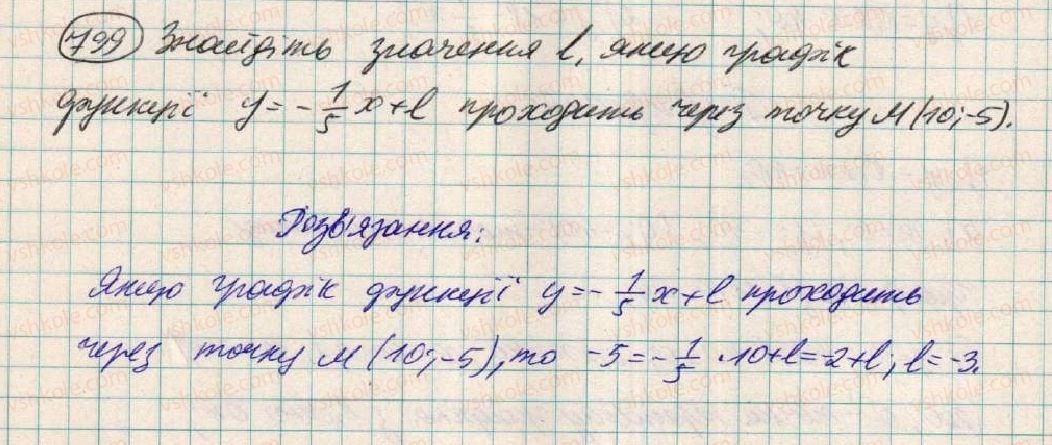 799 Знайдіть значення l, якщо графік
функції y = - 1/5 x + l проходить через точку M(10; -5).
Розв'язання:
Якщо графік функції y = - 1/5 x + l проходить
через точку M (10; -5), то -5 = - 1/5 · 10 + l = -2 + l; l = -3.